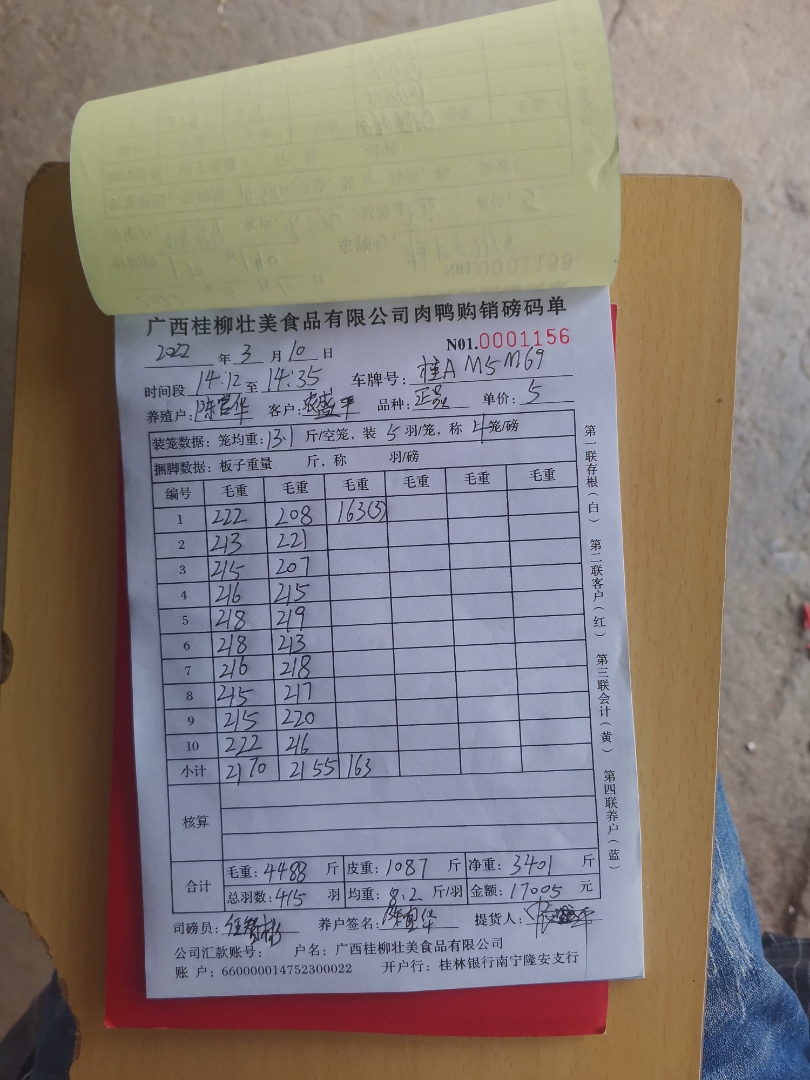 广西桂柳壮美食品有限公司肉鸭购销磅码单
2022 年 3 月 10 日 N01.0001156
时间段 14:12 至 14:35 车牌号: 桂A M5M69
养殖户: 陈 华 客户: 农 平 品种: 正品 单价: 5
装笼数据: 笼均重: 13.1 斤/空笼, 装 5 羽/笼, 称 4 笼/磅
捆脚数据: 板子重量 斤, 称 羽/磅
编号 毛重 毛重 毛重 毛重 毛重 毛重
1 222 208 163(3)
2 213 221
3 215 207
4 216 215
5 218 219
6 218 213
7 216 218
8 215 217
9 215 220
10 222 216
小计 2170 2155 163
核算
合计 毛重: 4488 斤 皮重: 1087 斤 净重: 3401 斤
总羽数: 415 羽 均重: 8.2 斤/羽 金额: 17005 元
司磅员: 养户签名: 陈 华 提货人:
公司汇款账号: 户名: 广西桂柳壮美食品有限公司
账 户: 660000014752300022 开户行: 桂林银行南宁隆安支行
第一联存根(白) 第二联客户(红) 第三联会计(黄) 第四联养户(蓝)